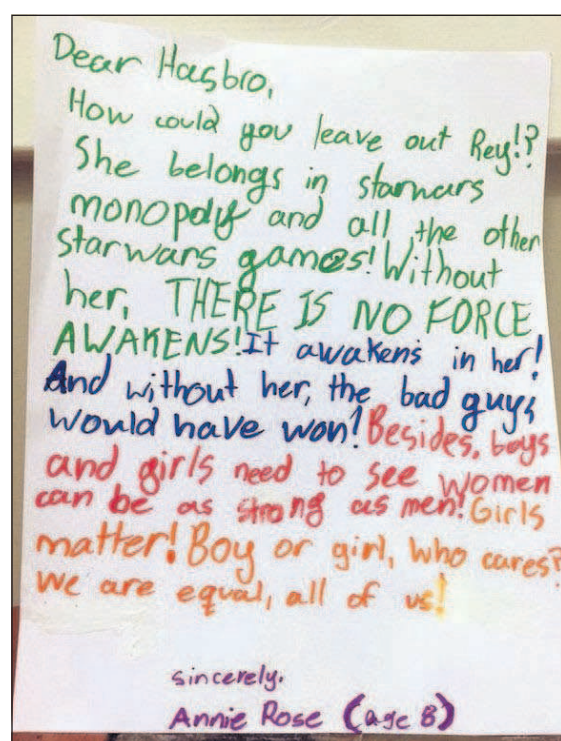 Dear Hasbro,
How could you leave out Rey!?
She belongs in starwars
monopoly and all the other
starwars games! Without
her, THERE IS NO FORCE
AWAKENS! It awakens in her!
And without her, the bad guys
would have won! Besides, boys
and girls need to see women
can be as strong as men! Girls
matter! Boy or girl, who cares?
we are equal, all of us!
sincerely.
Annie Rose (age 8)